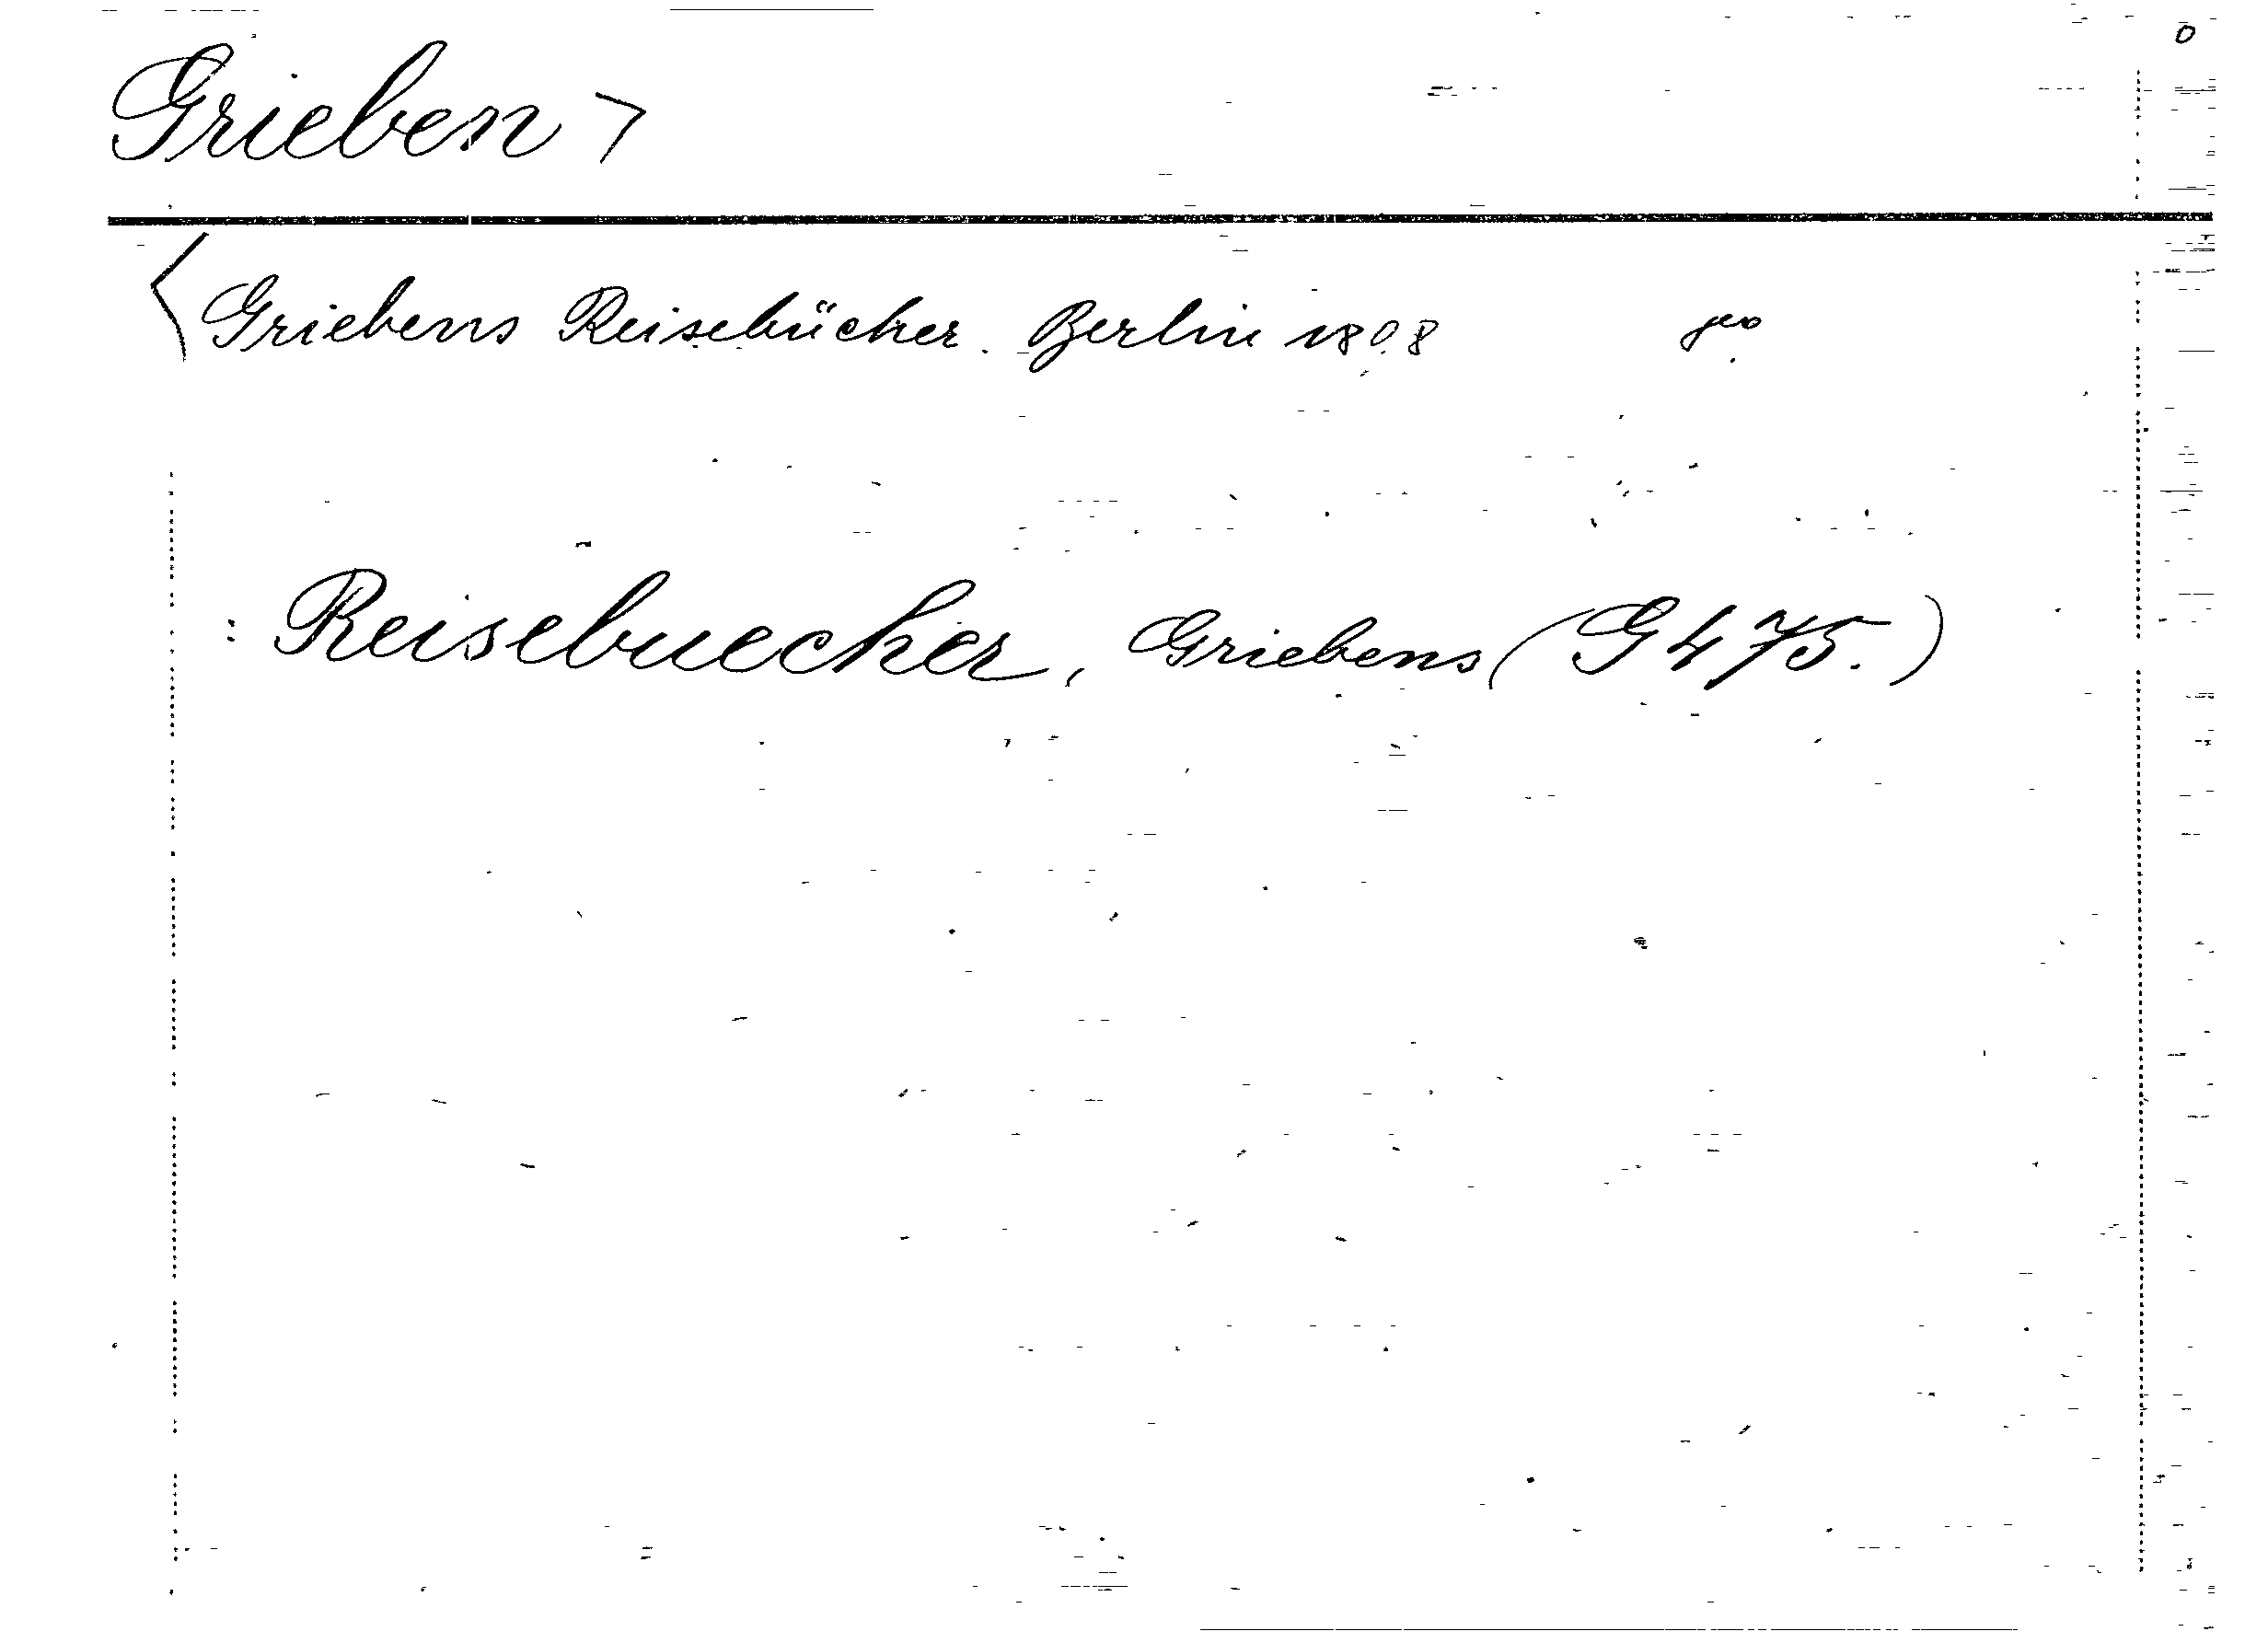 0
Grieben >
< Griebens Reisebücher. Berlin 1808
: Reisebuecher, Griebens (G 475.)